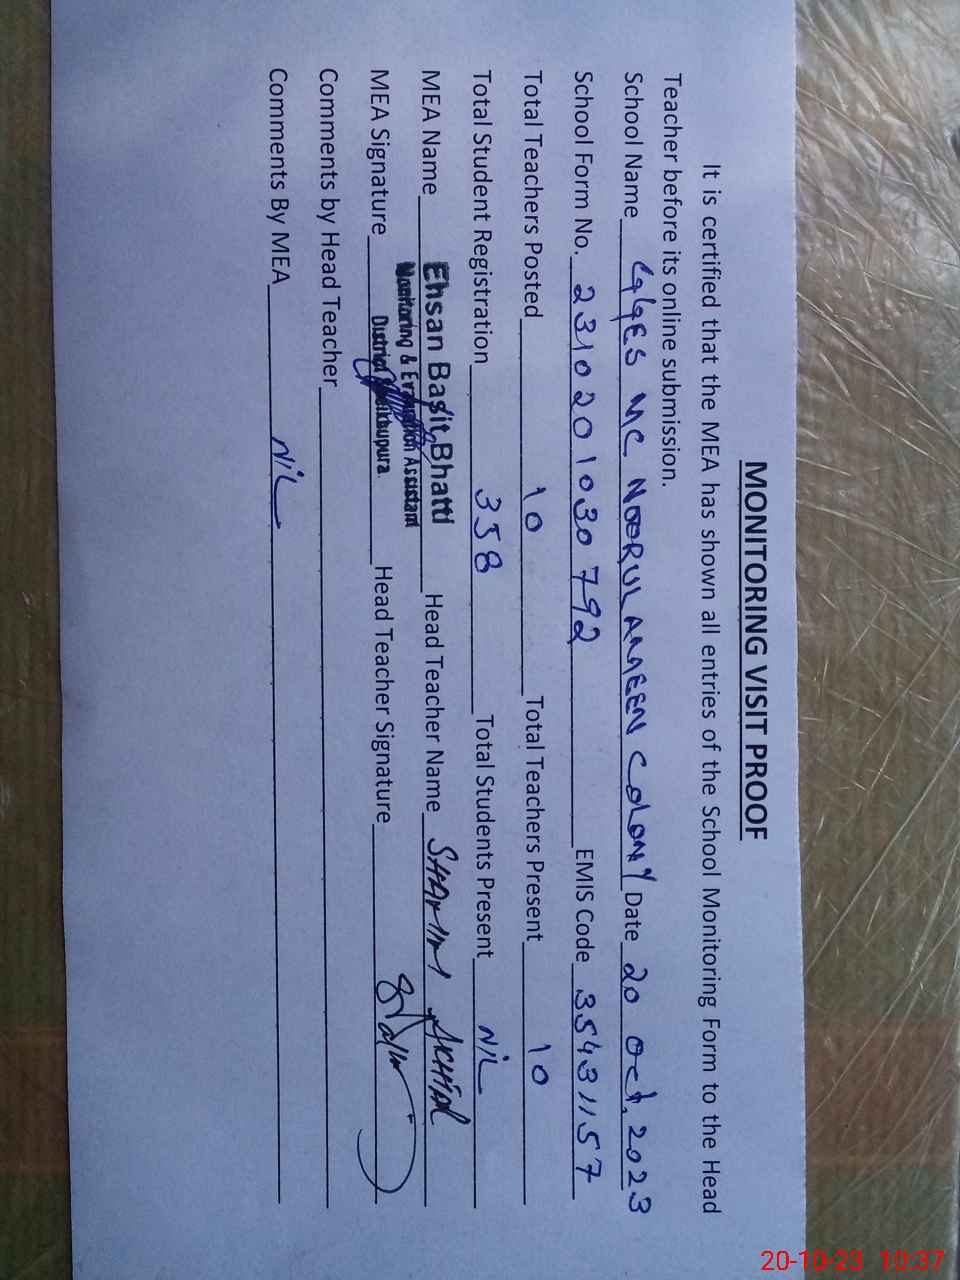 MONITORING VISIT PROOF
It is certified that the MEA has shown all entries of the School Monitoring Form to the Head
Teacher before its online submission.
School Name GGES MC NOORUL AMEEN COLONY Date 20 Oct, 2023
School Form No. 2310201030792 EMIS Code 35431157
Total Teachers Posted 10 Total Teachers Present 10
Total Student Registration 358 Total Students Present NIL
MEA Name Ehsan Basit Bhatti Head Teacher Name SHAMIM AKHTAR
Monitoring & Evaluation Assistant
MEA Signature District Sheikhupura. Head Teacher Signature
Comments by Head Teacher
Comments By MEA NIL
20-10-23 10:37